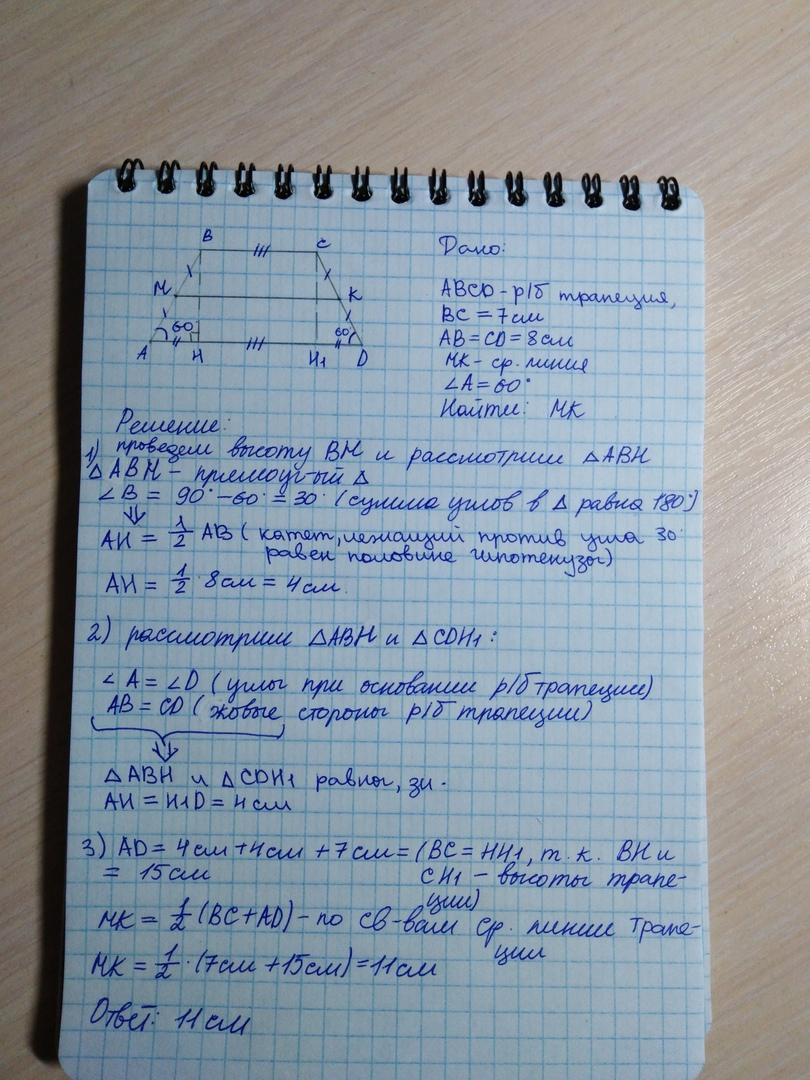 B C
M K
60° 60°
A H H1 D
Дано:
ABCD - р/б трапеция,
BC = 7 см
AB = CD = 8 см
MK - ср. линия
∠A = 60°
Найти: MK
Решение:
1) проведем высоту BH и рассмотрим △ABH
△ABH - прямоуг-ый △
∠B = 90° - 60° = 30° (сумма углов в △ равна 180°)
⇓
AH = 1/2 AB (катет, лежащий против угла 30°
равен половине гипотенузы)
AH = 1/2 · 8 см = 4 см.
2) рассмотрим △ABH и △CDH1:
∠A = ∠D (углы при основании р/б трапеции)
AB = CD (боковые стороны р/б трапеции)
⇓
△ABH и △CDH1 равны, зн.
AH = H1D = 4 см
3) AD = 4 см + 4 см + 7 см = (BC = HH1, т. к. BH и
= 15 см CH1 - высоты трапе-
ции)
MK = 1/2 (BC + AD) - по св-вам ср. линии трапе-
ции
MK = 1/2 · (7 см + 15 см) = 11 см
Ответ: 11 см